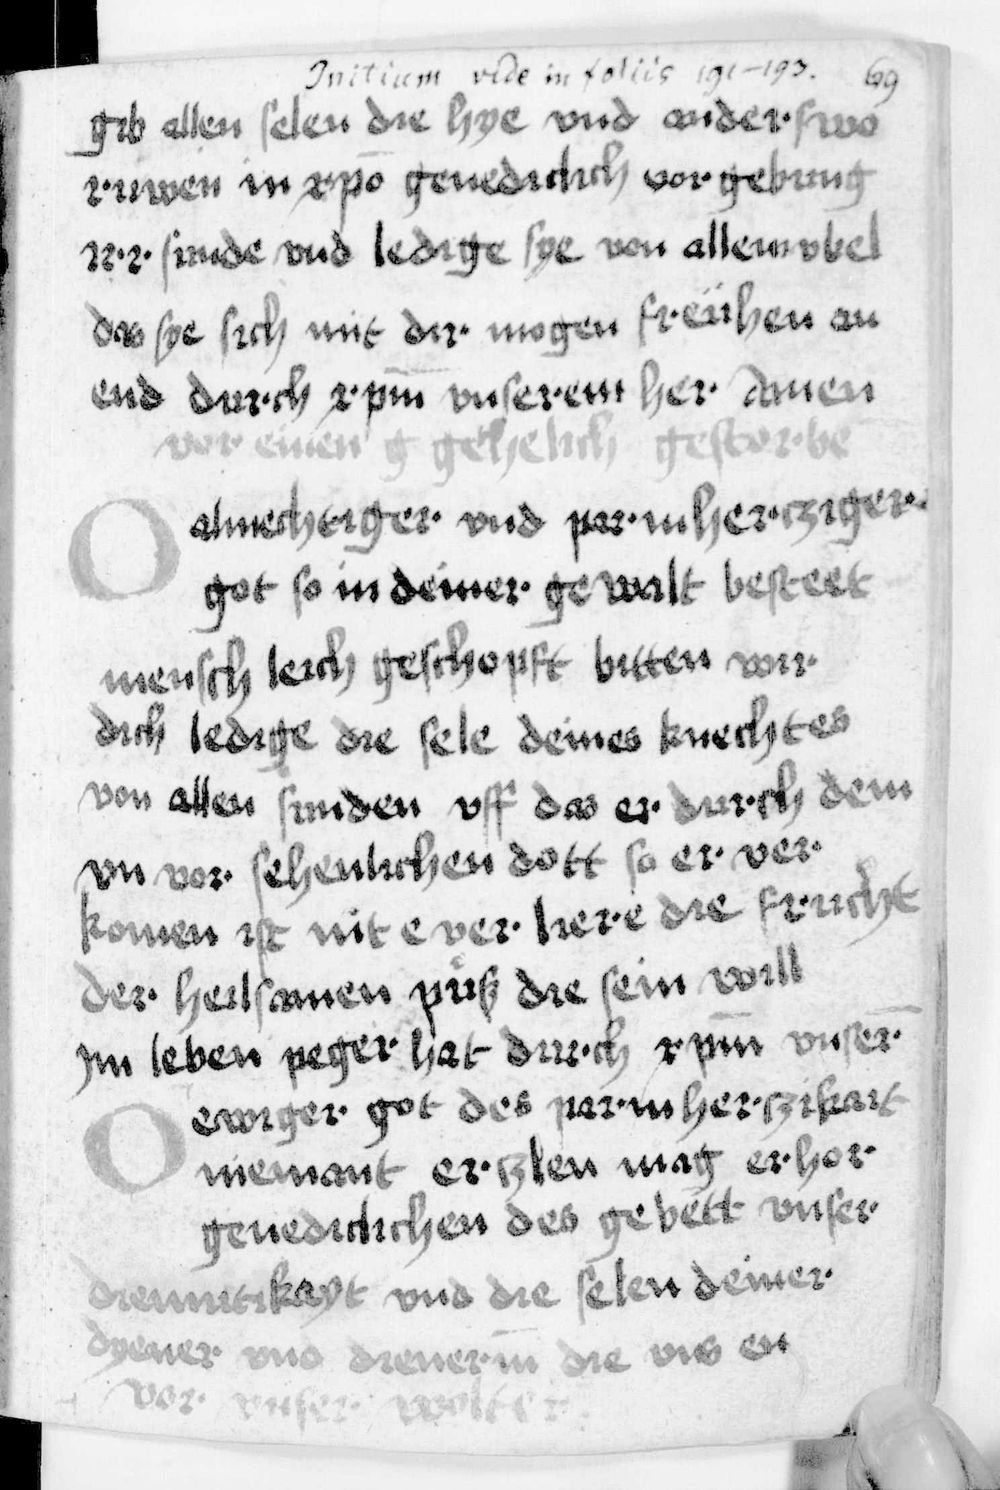 Initium vide in foliis 191-193. 69
gib allen selen die hye vnd anderswo
ruwen in xpō genediclich vorgebung
irr sunde vnd ledige sye von allem vbel
das sye sich mit dir mogen freühen an
end durch xpm̄ vnserem her Amen
vor einen g gehelich gestorbe
O almechtiger vnd parmhercziger
got so in deiner gewalt besteet
menschleich geschopft bitten wir
dich ledige die sele deines knechtes
von allen sunden vff das er durch dem
vn vor sehenlichen dott so er ver
komen ist nit e verliere die frucht
der heilsamen puß die sein will
Im leben peger hat durch xpm̄ vnser̄
O ewiger got des parmherczikait
niemant erczlen mag erhor
genediclichen des gebett vnser
diemutikayt vnd die selen deiner
dyener vnd dienerin̄ die vns en
vor vnser wolter